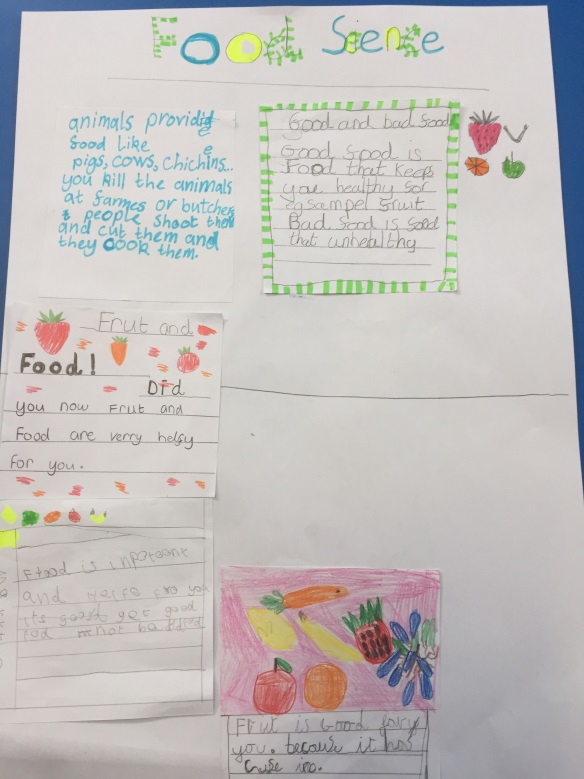 Food Science
animals providig
food like
pigs, cows, chichins..
you kill the animals
at farmes or butchers
& people shoot them
and cut them and
they cook them.
Good and bad food
Good food is
Food that keeps
you healthy for
egsampel fruit
Bad food is food
that unhealthy
Frut and
Food!
Did
you now Frut and
Food are verry helfy
for you.
Food is inpoteant
and
its good good
not be
FFrut is Good for
you. becaus it has